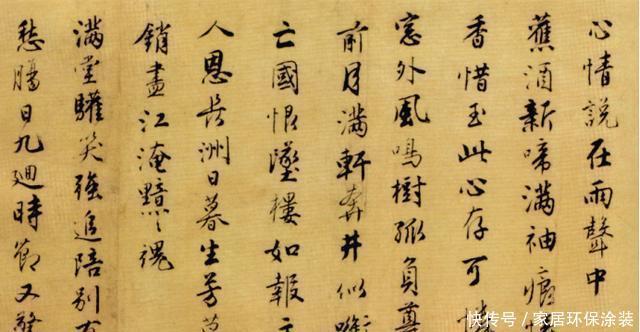 心情說在雨聲中
蕉酒新啼滿袖痕
香惜玉此心存可
窓外風鳴樹孤負尊
前月滿軒奔井似唯
亡國恨墜樓如報主
人恩長洲日暮生芳草
銷盡江淹黯々魂
滿堂驩笑強追陪別有
愁腸日九廻時節又驚
快传号／家居环保涂装